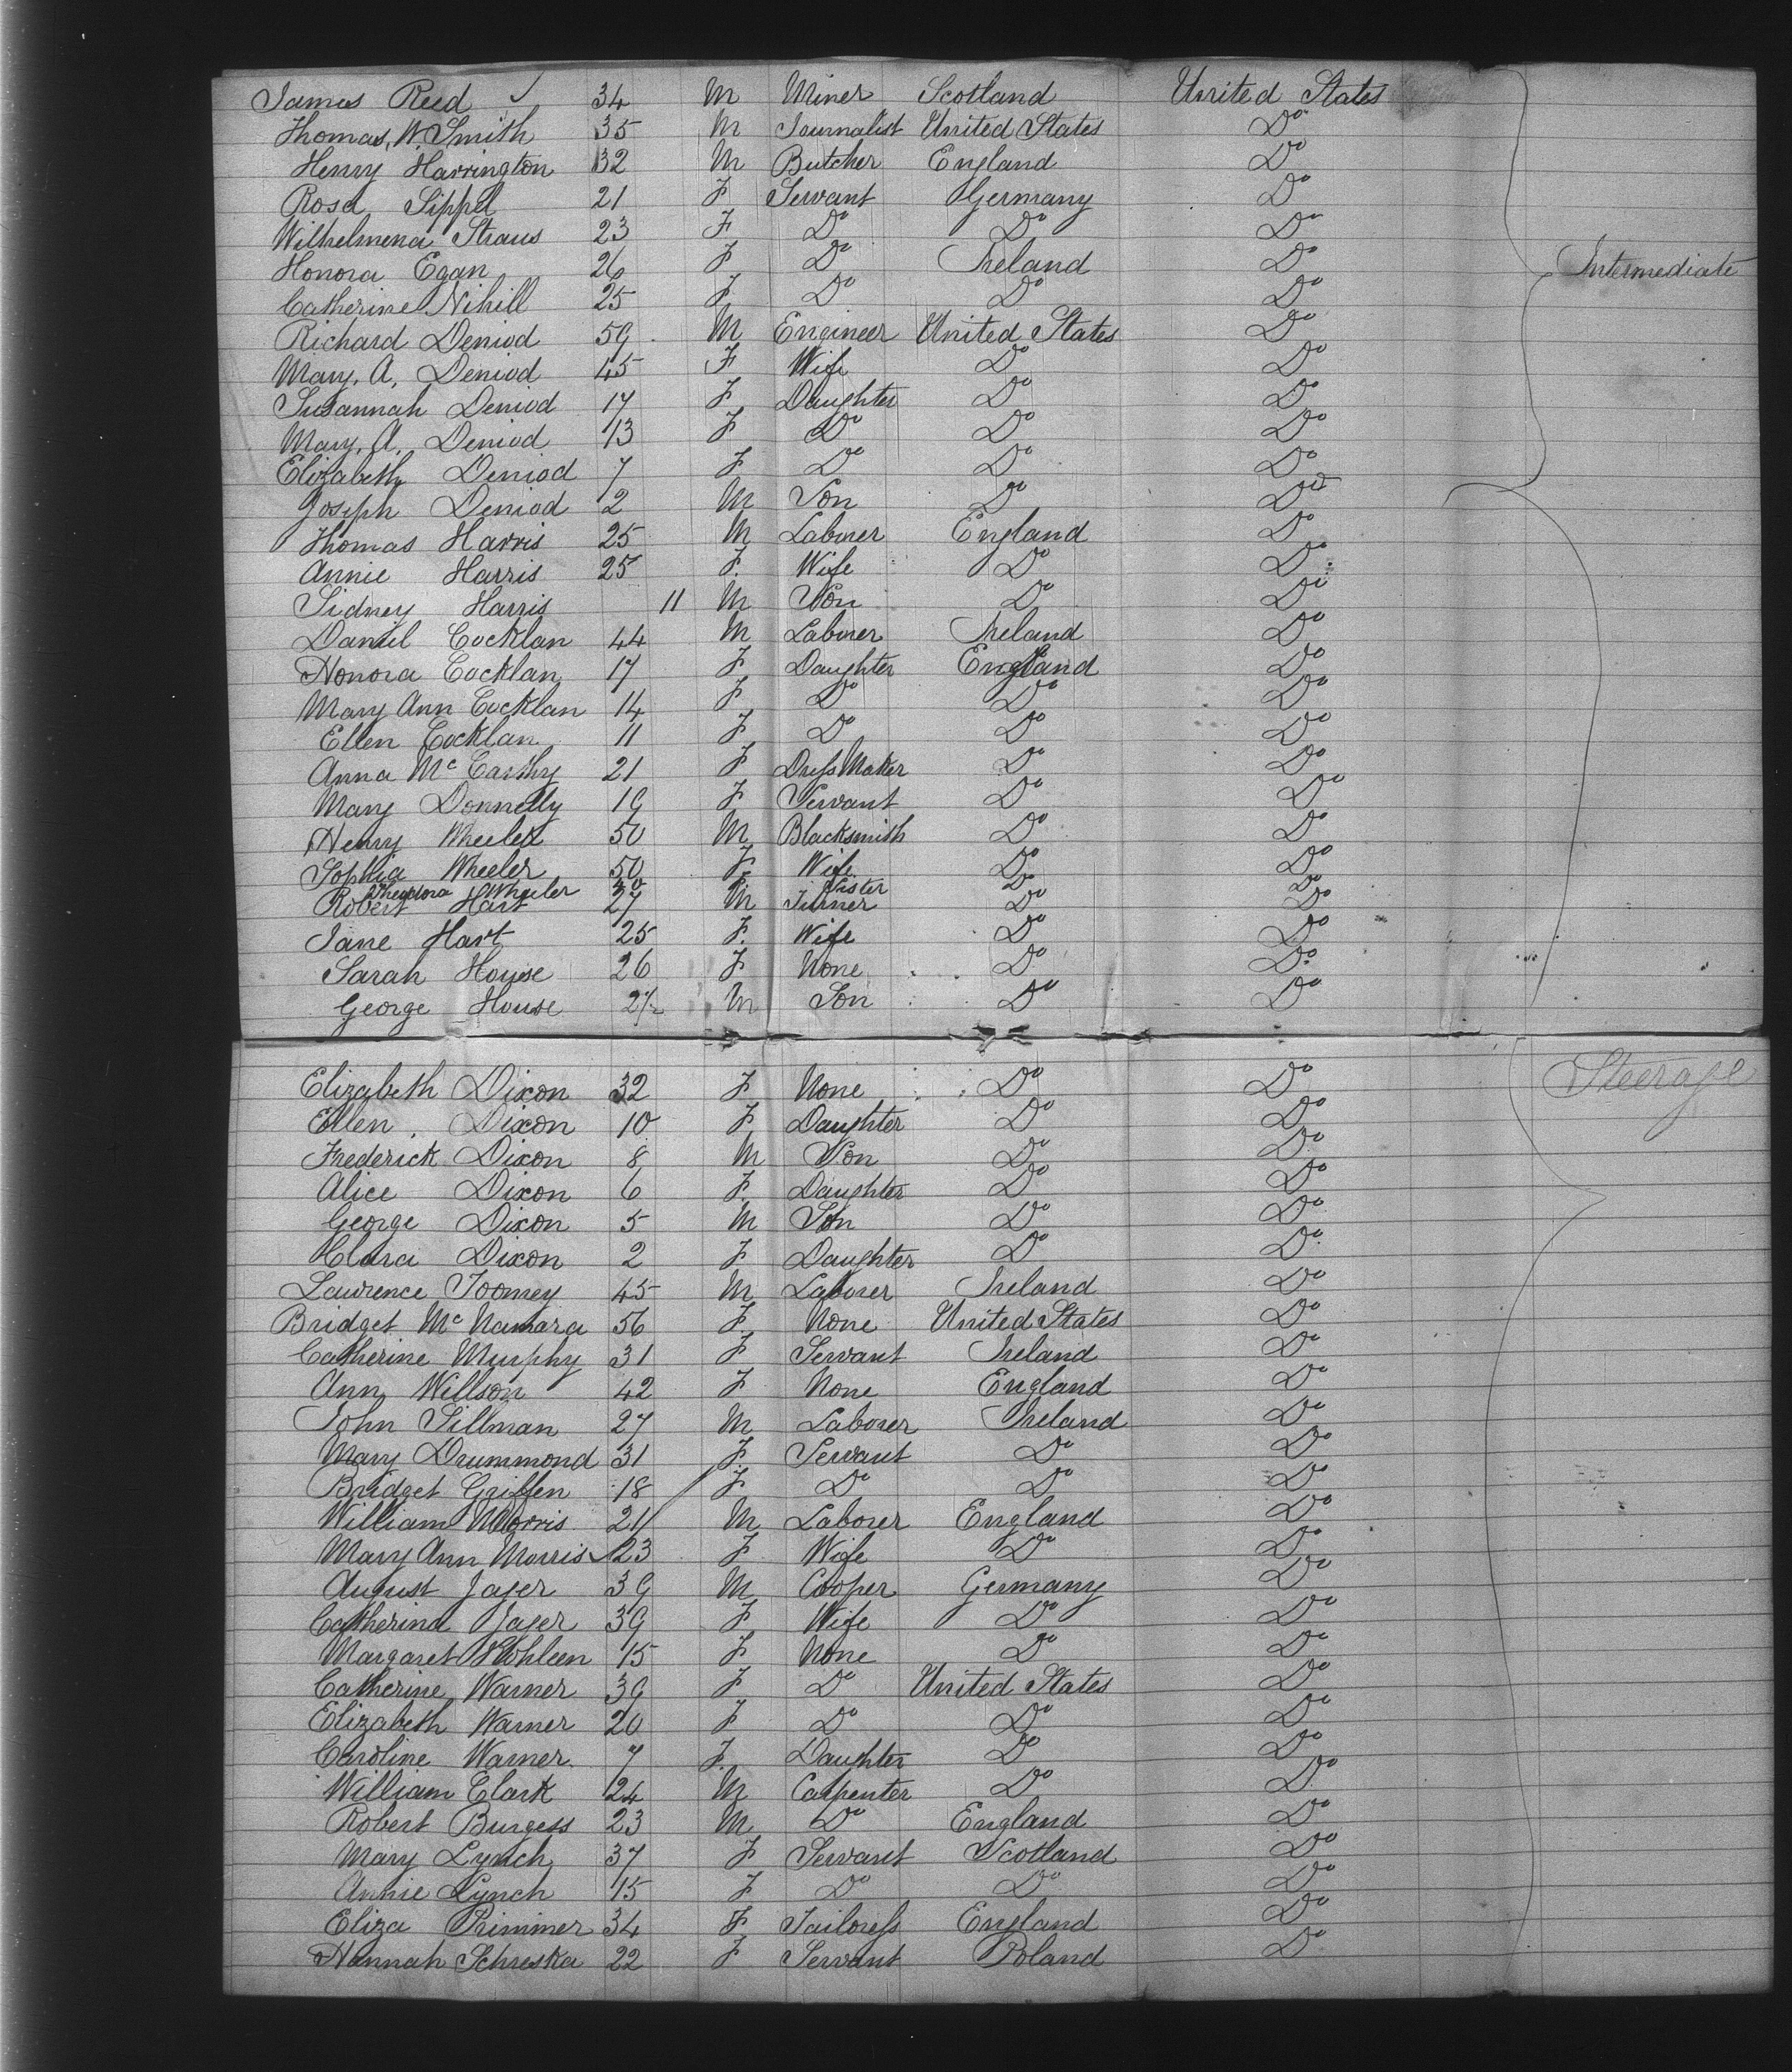 James Reed ✓ 34 M Miner Scotland United States
Thomas, W. Smith 35 M Journalist United States Do
Henry Harrington 32 M Butcher England Do
Rosa Sippel 21 F Servant Germany Do
Wilhelmena Straus 23 F Do Do Do
Honora Egan 26 F Do Ireland Do
Intermediate
Catherine Nihill 25 F Do Do Do
Richard Deniod 59 M Engineer United States Do
Mary. A. Deniod 45 F Wife Do Do
Susannah Deniod 17 F Daughter Do Do
Mary. A. Deniod 13 F Do Do Do
Elizabeth Deniod 7 F Do Do Do
Joseph Deniod 2 M Son Do Do
Thomas Harris 25 M Laborer England Do
Annie Harris 25 F. Wife Do Do
Sidney Harris 11 M Son Do Do
Daniel Cocklan 44 M Laborer Ireland Do
Honora Cocklan 17 F Daughter England Do
Mary Ann Cocklan 14 F Do Do Do
Ellen Cocklan 11 F Do Do Do
Anna Mc Carthy 21 F Dress Maker Do Do
Mary Donnelly 19 F Servant Do Do
Henry Wheeler 50 M Blacksmith Do Do
Sophia Wheeler 50 F Wife Do Do
Theodora Wheeler 30 F. Sister Do Do
Robert Hart 27 M Turner Do Do
Jane Hart 25 F. Wife Do Do
Sarah House 26 F None Do Do
George House 2½ M Son Do Do
Elizabeth Dixon 32 F None Do Do
Steerage
Ellen. Dixon 10 F Daughter Do Do
Frederick Dixon 8 M Son Do Do
Alice Dixon 6 F. Daughter Do Do
George Dixon 5 M Son Do Do
Clara Dixon 2 F Daughter Do Do
Lawrence Toomey 45 M Laborer Ireland Do
Bridget Mc Namara 56 F None United States Do
Catherine Murphy 31 F Servant Ireland Do
Ann Willson 42 F None England Do
John Sillman 27 M Laborer Ireland Do
Mary Drummond 31 F. Servant Do Do
Bridget Griffen 18 F Do Do Do
William Morris 21 M Laborer England Do
Mary Ann Morris ✓ 23 F Wife Do Do
August Jager 39 M Cooper Germany Do
Catherina Jager 39 F Wife Do Do
Margaret 15 F None Do Do
Catherine Warner 39 F Do United States Do
Elizabeth Warner 20 F Do Do Do
Caroline Warner 7 F. Daughter Do Do
William Clark 24 M Carpenter Do Do
Robert Burgess 23 M Do England Do
Mary Lynch 37 F Servant Scotland Do
Annie Lynch 15 F Do Do Do
Eliza Primmer 34 F Tailoress England Do
Hannah Schreska 22 F Servant Poland Do